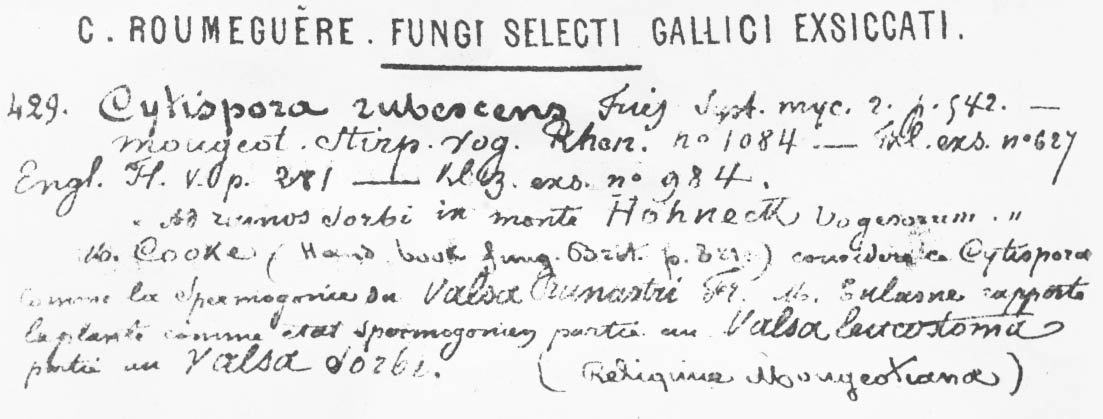 C. ROUMEGUÈRE. FUNGI SELECTI GALLICI EXSICCATI.
429. Cytispora rubescens Fries Syst. myc. 2. p. 542. —
Mougeot. Stirp. Vog. Rhen. nº 1084 — exs. nº 627
Engl. Fl. V. p. 281 — exs. nº 984.
„ Ad ramos Sorbi in monte Hohneck Vogesorum. „
M. Cooke (Hand book fung. Brit. p. ) considère ce Cytispora
comme la Spermogonie du Valsa Prunastri Fr. M. Tulasne rapporte
la plante comme état spermogonien partie au Valsa leucostoma
partie au Valsa Sorbi. (Reliquiae Mougeotianae)